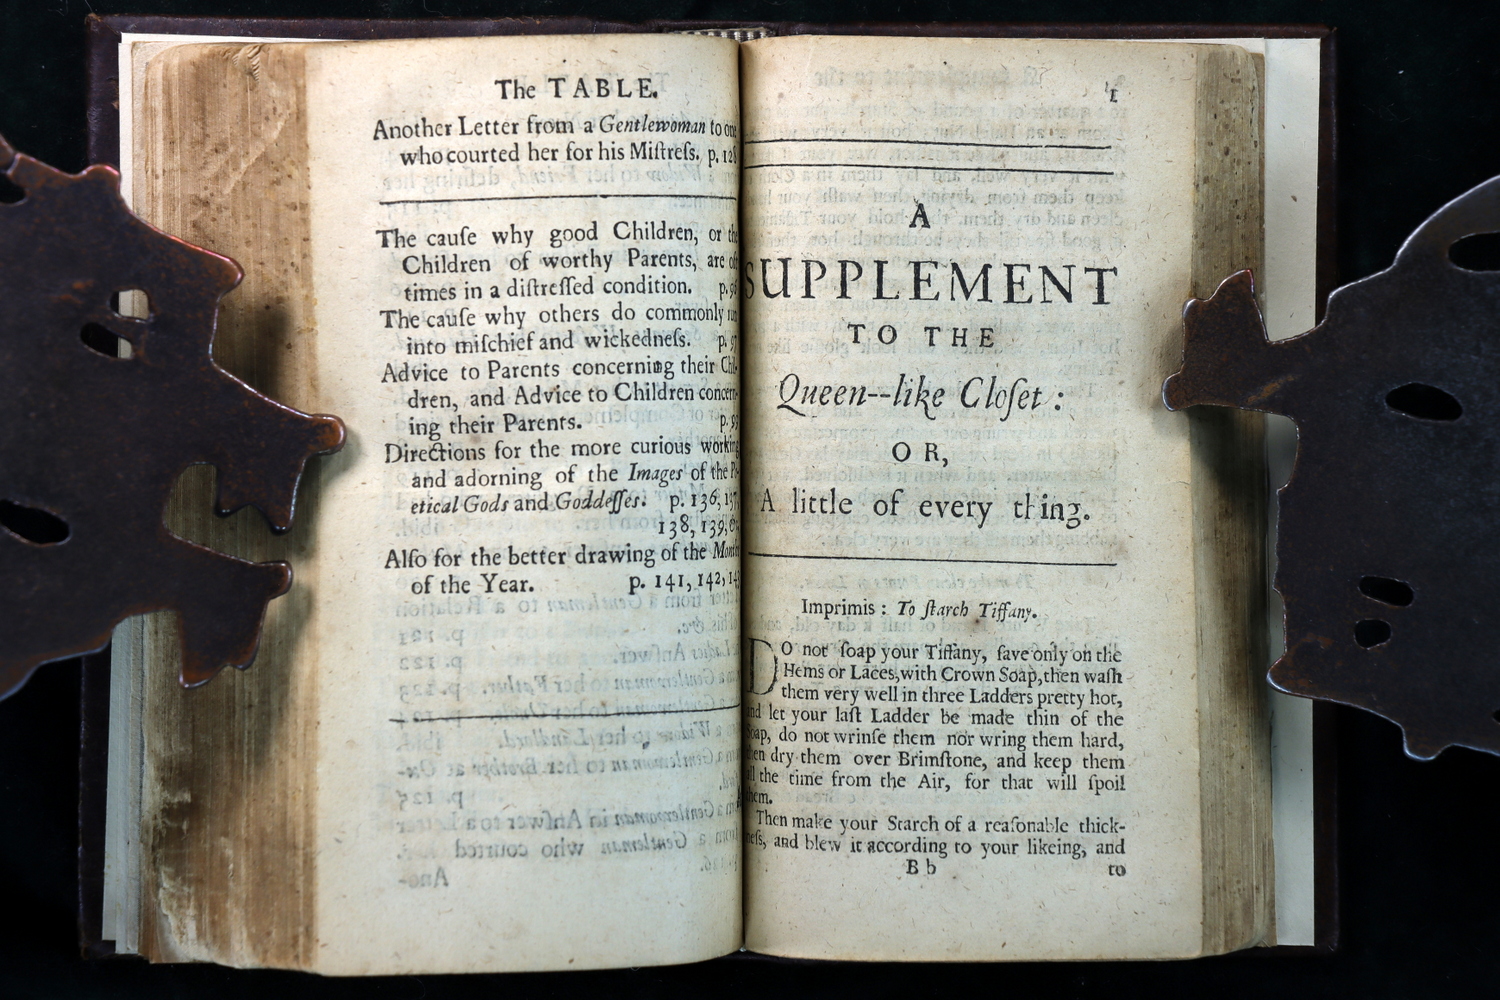 The TABLE.
Another Letter from a Gentlewoman to one
who courted her for his Miſtreſs. p. 128
The cauſe why good Children, or the
Children of worthy Parents, are of
times in a diſtreſſed condition. p. 96
The cauſe why others do commonly run
into miſchief and wickedneſs. p. 97
Advice to Parents concerning their Chil-
dren, and Advice to Children concern-
ing their Parents. p. 99
Directions for the more curious working
and adorning of the Images of the Po-
etical Gods and Goddeſſes. p. 136, 137,
138, 139, &c.
Alſo for the better drawing of the Months
of the Year. p. 141, 142, 143
1
A
SUPPLEMENT
TO THE
Queen--like Cloſet :
OR,
A little of every thing.
Imprimis : To ſtarch Tiffany.
DO not ſoap your Tiffany, ſave only on the
Hems or Laces, with Crown Soap, then waſh
them very well in three Ladders pretty hot,
and let your laſt Ladder be made thin of the
Soap, do not wrinſe them nor wring them hard,
then dry them over Brimſtone, and keep them
all the time from the Air, for that will ſpoil
them.
Then make your Starch of a reaſonable thick-
neſs, and blew it according to your likeing, and
B b to